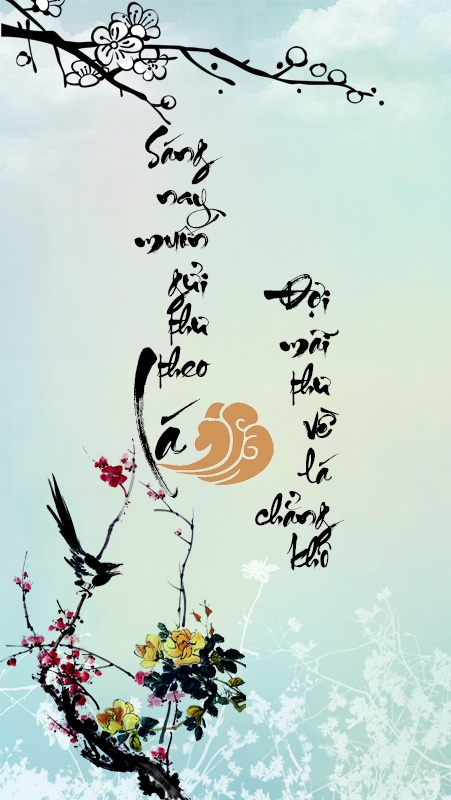 Sáng
nay
muốn
gửi
thu
theo
lá
Đợi
mãi
thu
về
lá
chẳng
khô